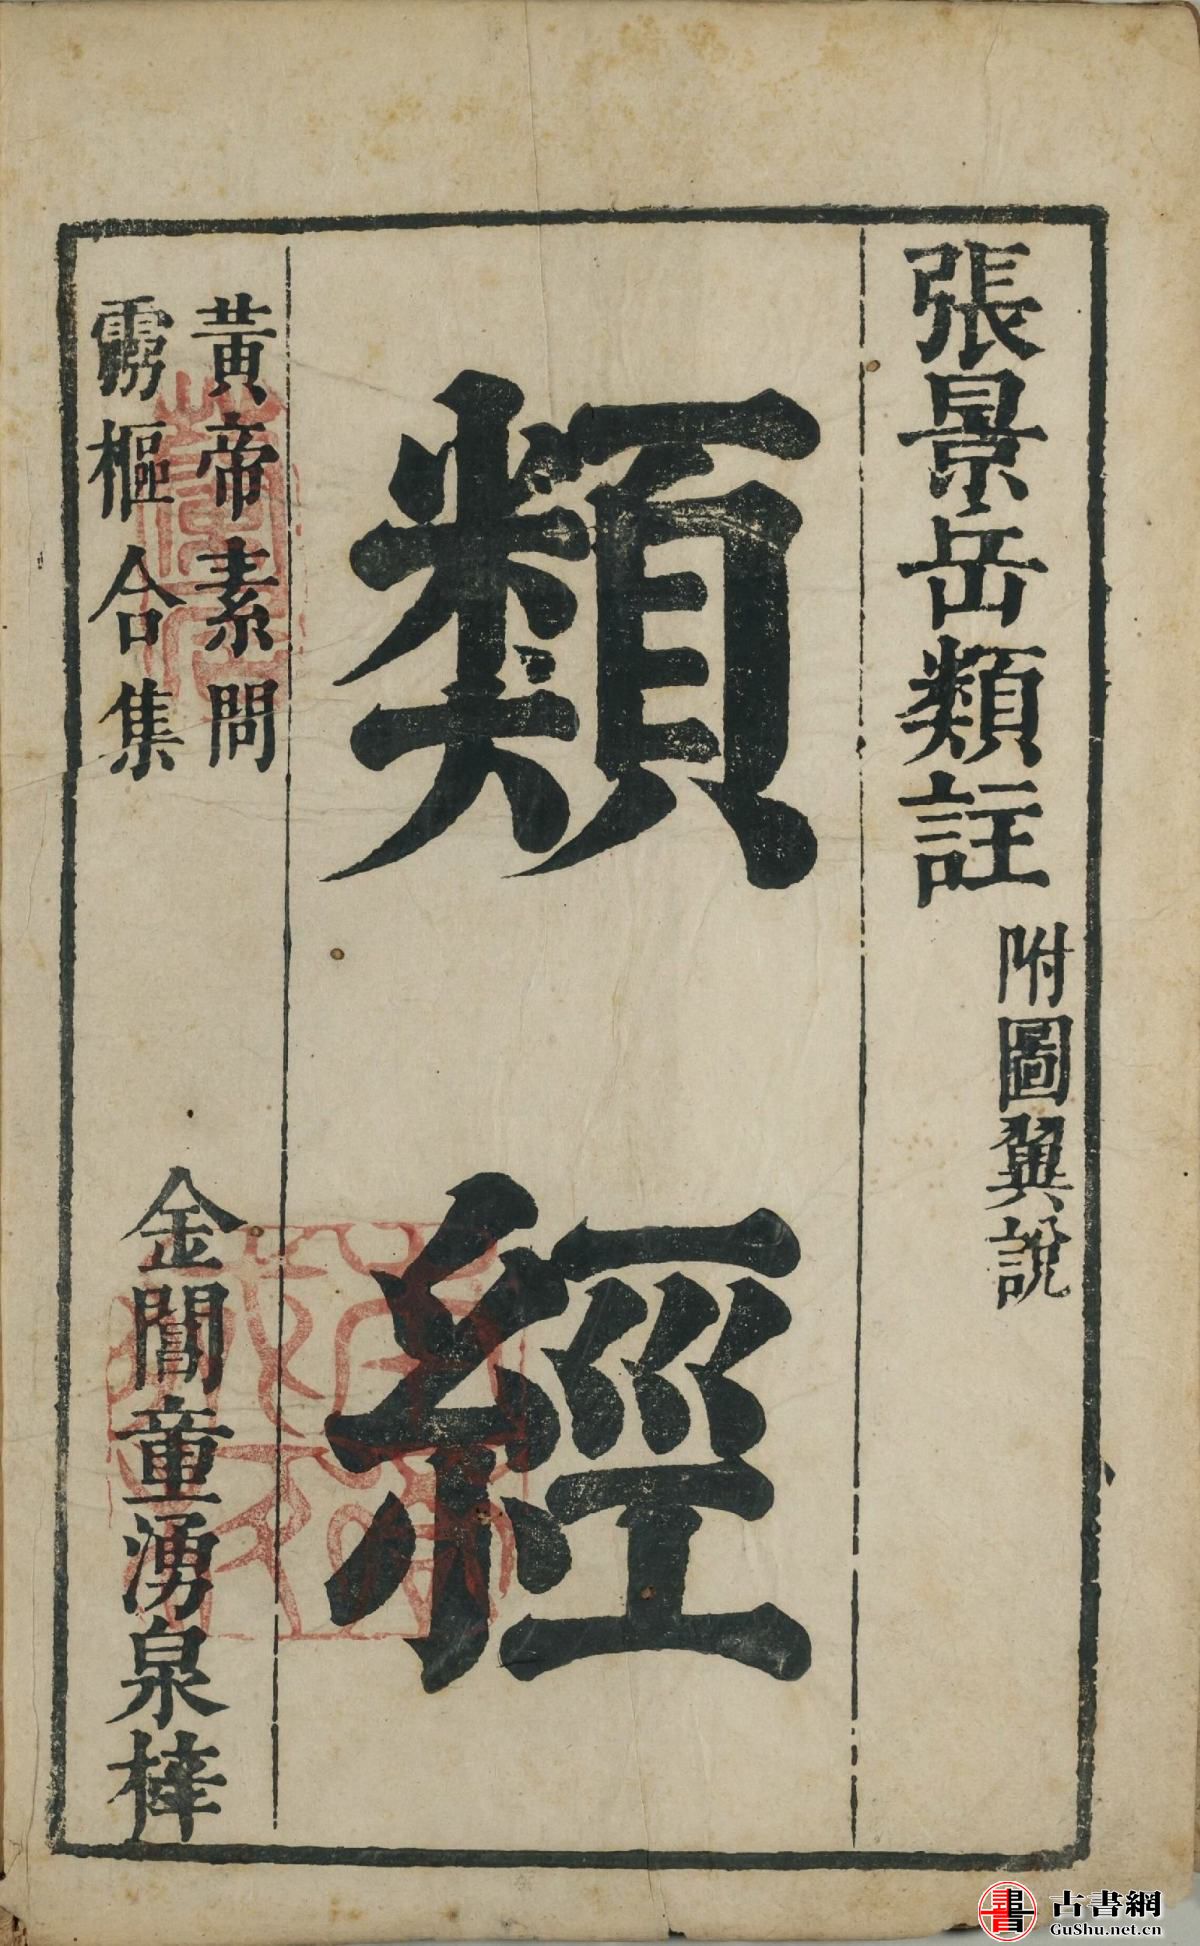 張景岳類註
附圖翼說
類經
黃帝素問
靈樞合集
金閶童湧泉梓
古書網
GuShu.net.cn